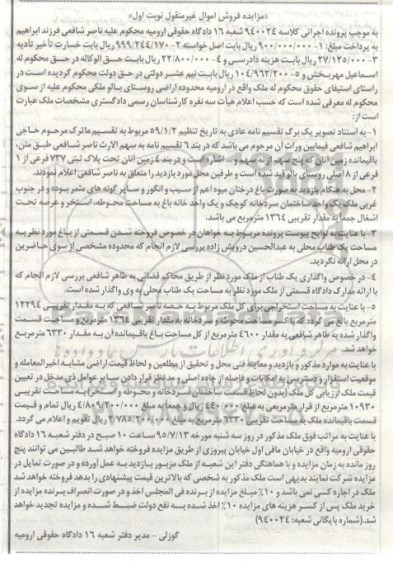 «مزایده فروش اموال غیرمنقول نوبت اول»
به موجب پرونده اجرائی کلاسه ۹۴۰۰۲۴ شعبه ۱۶ دادگاه حقوقی ارومیه محکوم علیه ناصر شافعی فرزند ابراهیم
به پرداخت مبلغ: ۱- ۹۰۰/۰۰۰/۰۰۰ ریال بابت اصل خواسته ۲- ۹۹۹/۲۴۴/۱۷۰ ریال بابت خسارت تأخیر تأدیه
۳- ۲۷/۱۲۵/۰۰۰ ریال بابت هزینه دادرسی و ۴- ۲۲/۸۰۰/۰۰۰ ریال بابت حق الوکاله در حق محکوم له
اسماعیل مهربخش و ۵- ۱۰۴/۹۶۲/۲۰۰ ریال بابت نیم عشر دولتی در حق دولت محکوم گردیده است در
راستای استیفای حقوق محکوم له ملک واقع در ارومیه محدوده اراضی روستای بالو ملکی محکوم علیه از سوی
محکوم له معرفی شده است که حسب اعلام هیأت سه نفره کارشناسان رسمی دادگستری مشخصات ملک عبارت
است از:
۱- به استناد تصویر یک برگ تقسیم نامه عادی به تاریخ تنظیم ۵۹/۱/۲ مربوط به تقسیم ماترک مرحوم حاجی
ابراهیم شافعی فیمابین وراث آن مرحوم می باشد که در بند ۶ تقسیم نامه به سهم الارث ناصر شافعی طبق متن:
باقیمانده زمین انان که پنج سهم از نه سهم و ... اشاره است و در بند ۴ زمین آنان تحت پلاک ثبتی ۷۳۷ فرعی از ۱
فرعی از ۸ اصلی روستای بالو قید شده است و طرفین محل مورد بازدید را متعلق به ناصر شافعی اعلام نمودند.
۲- محل به هنگام بازدید به صورت باغ درختان میوه اعم از سیب و انگور و سایر گونه های مثمر بوده و در جنوب
غربی ملک یک واحد ساختمان سردخانه کوچک و یک واحد خانه باغ به مساحت محوطه، استخر و عرصه تحت
اشغال جمعا به مقدار تقریبی ۱۳۶۴ مترمربع می باشد.
۳- با عنایت به لوایح پیوست پرونده مربوط به خواهان در خصوص فروخته شدن قسمتی از باغ مورد نظر به
مساحت یک طناب محلی به عبدالحسین درویش زاده بررسی لازم انجام که محدوده مشخصی از سوی حاضرین
در محل ارائه نگردید.
۴- در خصوص واگذاری یک طناب از ملک موردنظر از طریق محاکم قضائی به طاهر شافعی بررسی لازم انجام که
با ارائه مدارک دادگاه قسمتی از ملک مورد نظر به مساحت یک طناب محلی به وی واگذار شده است.
۵- با عنایت به مساحت استخراجی برای کل ملک مربوط به حصه ناصر شافعی که به مقدار تقریبی ۱۲۲۹۴
مترمربع بالغ می گردد که با کسر مساحت محوطه و سردخانه به مقدار تقریبی ۱۳۶۴ مترمربع و مساحت قسمت
واگذار شده به طاهر شافعی به مقدار ۴۶۰۰ مترمربع از کل مساحت باغ باقیمانده ان به مقدار ۶۳۳۰ مترمربع
خواهد شد.
با عنایت به موارد مذکور و بازدید و معاینه فنی محل و تحقیق از مطلعین و لحاظ قیمت اراضی مشابه اخیرالمعامله و
موقعیت استقرار و دسترسی به امکانات و فاصله از جاده اصلی و مد نظر قرار دادن سایر عوامل ذی مدخل در تعیین
قیمت ملک ارزیابی کل ملک (بدون لحاظ قیمت ساختمان سردخانه و محوطه و استخر) به مساحت تقریبی
۱۰۹۳۰ مترمربع از قرار مترمربعی به مبلغ ۴۴۰/۰۰۰ ریال و جمعا به مبلغ ۴/۸۰۹/۲۰۰/۰۰۰ ریال تمام و قیمت
قسمت باقیمانده ملک به مساحت تقریبی ۶۳۳۰ مترمربع به مبلغ ۲/۷۸۵/۲۰۰/۰۰۰ ریال تقویم و اعلام می گردد.
با عنایت به مراتب فوق ملک مذکور در روز سه شنبه مورخه ۹۵/۷/۱۳ ساعت ۱۰ صبح در دفتر شعبه ۱۶ دادگاه
حقوقی ارومیه واقع در خیابان مافی اول خیابان پیروزی از طریق مزایده فروخته خواهد شد طالبین می توانند پنج
روز مانده به زمان مزایده و با هماهنگی دفتر این شعبه از ملک مزبور بازدید به عمل آورده و در صورت تمایل در
مزایده شرکت نمایند بدیهی است ملک مذکور به شخصی که بالاترین قیمت پیشنهادی را بدهد فروخته خواهد شد
ملک در اجاره کسی نمی باشد و ۱۰٪ مبلغ مزایده از برنده فی المجلس اخذ و در صورت انصراف برنده مزایده از
خرید ملک پس از کسر هزینه های مزایده ۱۰٪ اخذ شده به نفع دولت ضبط شده و مزایده تجدید خواهد
شد. (شماره بایگانی شعبه: ۹۴۰۰۲۴)
گوزلی - مدیر دفتر شعبه ۱۶ دادگاه حقوقی ارومیه